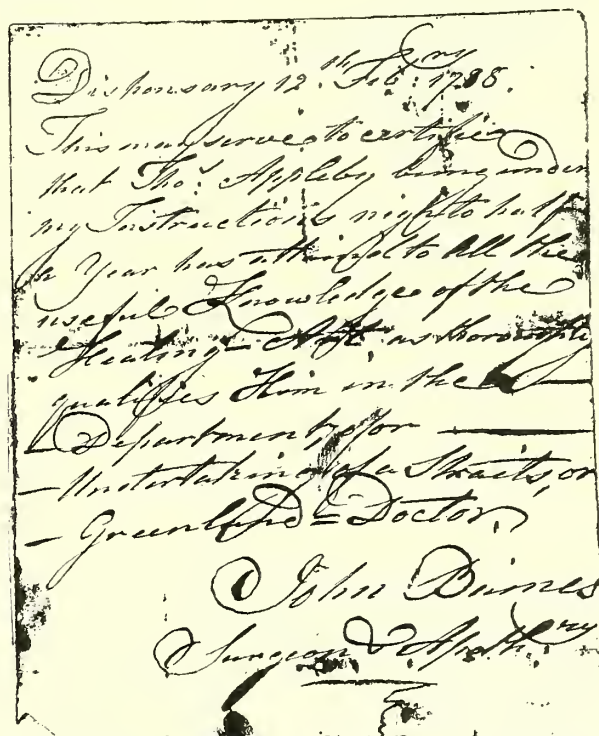 Dispensary 12.th Feb:ry 1788.
This may serve to certifie
that Tho.s Appleby being under
my Instructions nigh to half
a Year has attain'd to All the
useful Knowledge of the
Healing = Art, as thoroughly
qualifies Him in the
Department, for
Undertaking of a Straits, or
Greenland = Doctor,
John
Surgeon & Apoth:ry